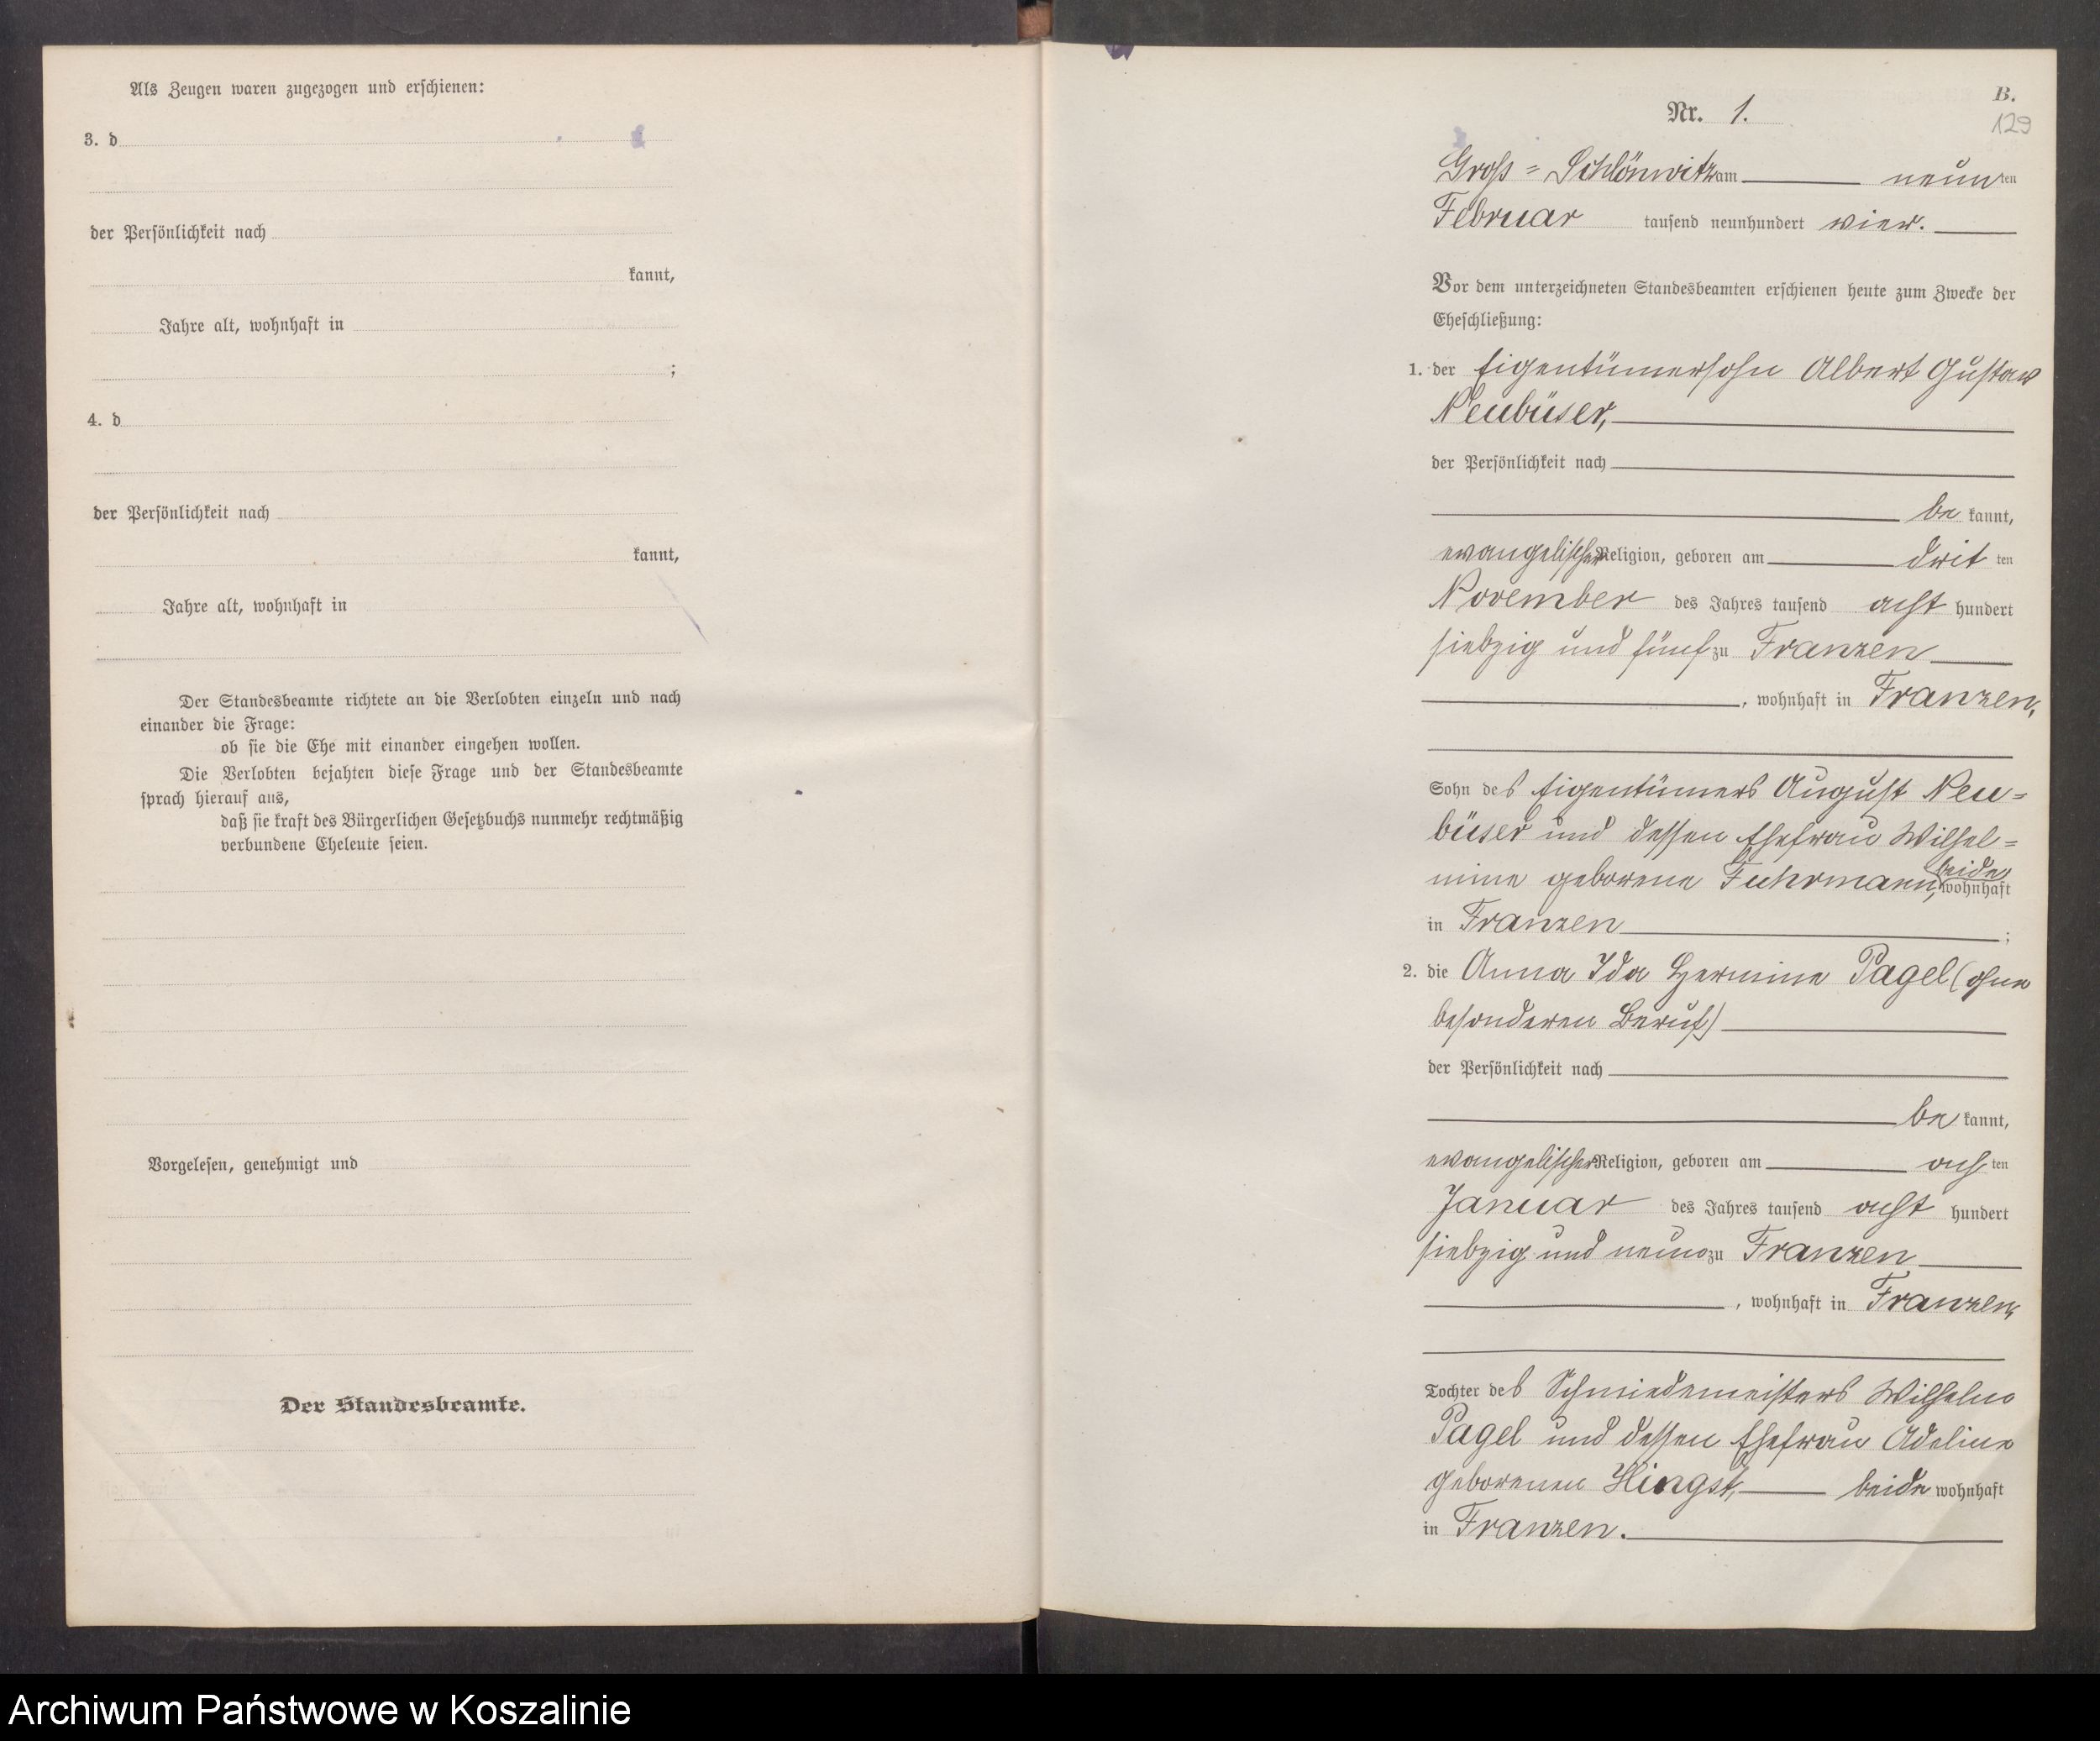 Als Zeugen waren zugezogen und erschienen:
3. d
der Persönlichkeit nach
kannt,
Jahre alt, wohnhaft in
;
4. d
der Persönlichkeit nach
kannt,
Jahre alt, wohnhaft in
Der Standesbeamte richtete an die Verlobten einzeln und nach
einander die Frage:
ob sie die Ehe mit einander eingehen wollen.
Die Verlobten bejahten diese Frage und der Standesbeamte
sprach hierauf aus,
daß sie kraft des Bürgerlichen Gesetzbuchs nunmehr rechtmäßig
verbundene Eheleute seien.
Vorgelesen, genehmigt und
Der Standesbeamte.
B.
Nr. 1.
129
Groß=Schlönwitz am neunten
Februar tausend neunhundert vier.
Vor dem unterzeichneten Standesbeamten erschienen heute zum Zwecke der
Eheschließung:
1. der Eigentümersohn Albert Gustav
Neubüser,
der Persönlichkeit nach
be kannt,
evangelischer Religion, geboren am dritten
November des Jahres tausend acht hundert
siebzig und fünf zu Franzen
, wohnhaft in Franzen,
Sohn des Eigentümers August Neu=
büser und dessen Ehefrau Wilhel=
mine geborene Fuhrmann, beide wohnhaft
in Franzen ;
2. die Anna Ida Hermine Pagel (ohne
besonderen Beruf)
der Persönlichkeit nach
be kannt,
evangelischer Religion, geboren am achten
Januar des Jahres tausend acht hundert
siebzig und neun zu Franzen
, wohnhaft in Franzen,
Tochter des Schmiedemeisters Wilhelm
Pagel und dessen Ehefrau Adeline
geborenen Hingst, beide wohnhaft
in Franzen.
Archiwum Państwowe w Koszalinie